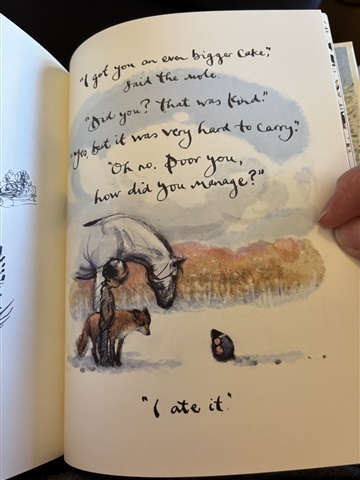 "I got you an even bigger cake,"
said the mole.
"Did you? That was kind."
"Yes, but it was very hard to carry."
"Oh no. Poor you,
how did you manage?"
"I ate it."